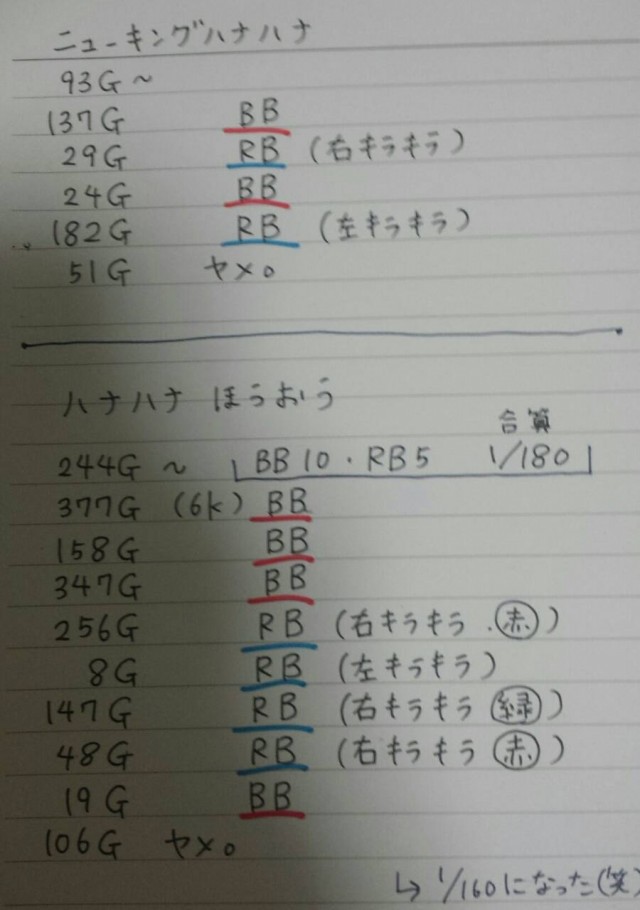 ニューキングハナハナ
93G～
137G BB
29G RB (右キラキラ)
24G BB
182G RB (左キラキラ)
51G ヤメ。
ハナハナ ほうおう
合算
244G ～ BB10・RB5 1/180
377G (6k) BB
158G BB
347G BB
256G RB (右キラキラ・赤)
8G RB (左キラキラ)
147G RB (右キラキラ 緑)
48G RB (右キラキラ 赤)
19G BB
106G ヤメ。
↳ 1/160になった(笑)